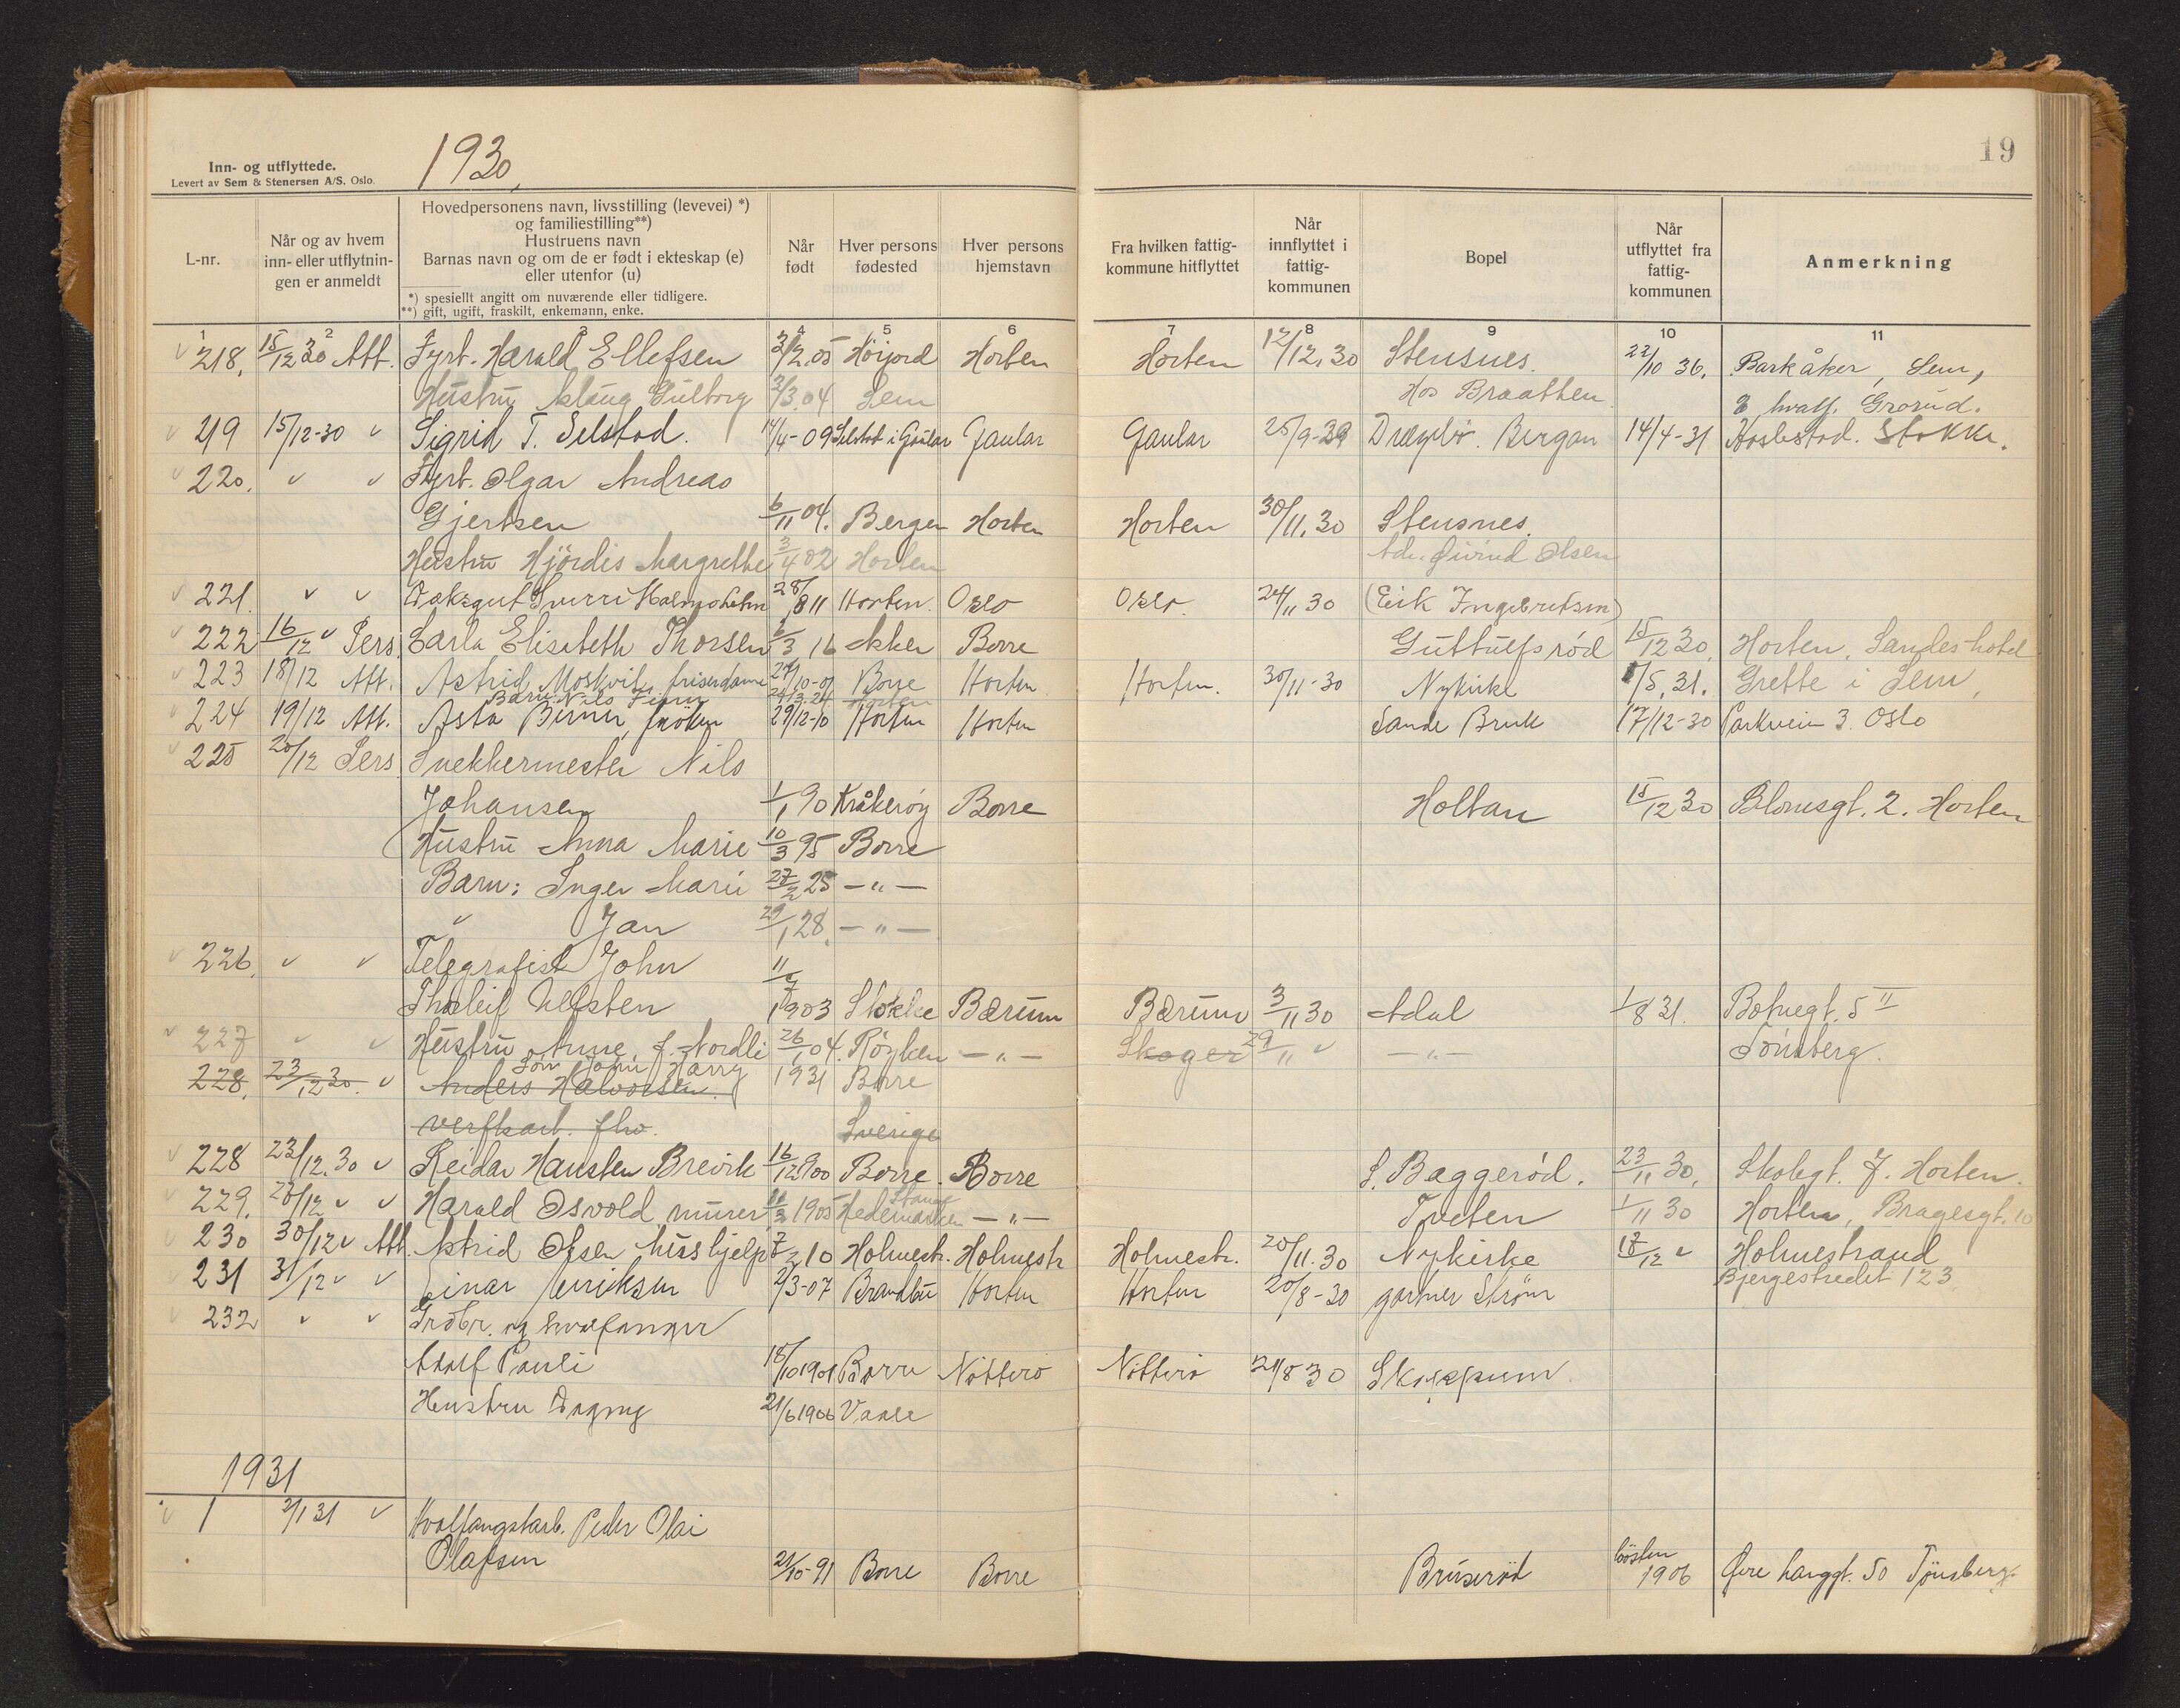 19
Inn- og utflyttede.
Levert av Sem & Stenersen A/S. Oslo.
1930,
L-nr.
Når og av hvem inn- eller utflytnin- gen er anmeldt
Hovedpersonens navn, livsstilling (levevei) *)
og familiestilling**)
Hustruens navn
Barnas navn og om de er født i ekteskap (e)
eller utenfor (u)
*) spesiellt angitt om nuværende eller tidligere.
**) gift, ugift, fraskilt, enkemann, enke.
Når født
Hver persons fødested
Hver persons hjemstavn
Fra hvilken fattig- kommune hitflyttet
Når innflyttet i fattig- kommunen
Bopel
Når utflyttet fra fattig- kommunen
Anmerkning
1 2 3 4 5 6 7 8 9 10 11
218. 15/12 30 Att. Fyrb. Harald Ellefsen 3/2.05 Horten Horten 12/12.30 Stensnes. 22/10 36. Barkåker, Sem,
Hustru Aslaug Gulborg 2/3.04 Sem Hos Braathen hvalf. Grorud.
219 15/12-30 " Sigrid T. Selstad. 14/4-09 Selstad i Gaular Gaular Gaular 25/9-29 Bergan 14/4-31 Stokke.
220. " " Fyrb. Olgar Andreas
Gjertsen 6/11 04. Bergen Horten Horten 30/11.30 Stensnes.
Hustru Hjördis Margrethe 3/4 02 Horten Adr. Øivind Olsen
221. " " Sverre Holm 28/8 11 Horten. Oslo Oslo. 24/11 30 (Eik Ingebretsen)
222 16/12 " Pers. Carla Elisabeth Thorsen 2/3 16 Aker Borre Guttulfsrød 15/12 30. Horten. Landes-hotel
223 18/12 Att. Astrid Moskvil, friserdame 10-01 Borre Horten Horten. 30/11-30 Nykirke 1/5.31. Grette i Sem,
Barn: Nils Finn Horten
224 19/12 Att. Asta frøken 29/12-10 Horten Horten Sande Bruk 17/12-30 Parkveien 3. Oslo
225 20/12 Pers. Snekkermester Nils
Johansen 1/1 90 Kråkerøy Borre Holtan 15/12 30 Blomsgt. 2. Horten
Hustru Anna Marie 10/3 95 Borre
Barn: Inger Marie 27/2 25 — " —
" Jan 29/1 28. — " —
226. " " Telegrafist John 11/7
Thorleif Ulfsten 1903 Stokke Bærum Bærum 3/11 30 Adal 1/8 31. Botnegt. 5 II
227 " " Hustru Anne, f. Nordli 26/1 04. Röyken — " — Skoger 29/11 " — " — Tönsberg.
Sön John Harry 1931 Borre
228. 23/12 30. " Anders Halvorsen.
verftsarb. Sverige
228 23/12.30 " Reidar Hansten Brevik 16/12 1900 Borre. Borre S. Baggeröd. 23/11 30. Skolegt. 7. Horten.
229. 28/12 " " Harald Osvold murer 1905 Stange Hedemarken — " — Tveten 1/11 30 Horten, Bragesgt. 10
230 30/12 " Att. Astrid Olsen husshjelp 7/2 10 Holmestr. Holmestr. Holmestr. 20/11.30 Nykirke 17/12 " Holmestrand
Bjergestredet 123
231 31/12 " " Einar Henriksen 2/3-07 Brandbu Horten Horten 20/8-30 gartner Strøm
232 " " og hvalfanger
Adolf Pauli 18/10 1901 Borre Nötterö Nötterö 21/8 30 Skoppum
Hustru Dagny 21/6 1906 Vaale
1931
1 2/1 31 " Hvalfangstarb. Peder Olai
Olafsen 21/10-91 Borre Borre Bruseröd hösten 1906 Øvre Langgt. 50 Tjönsberg.